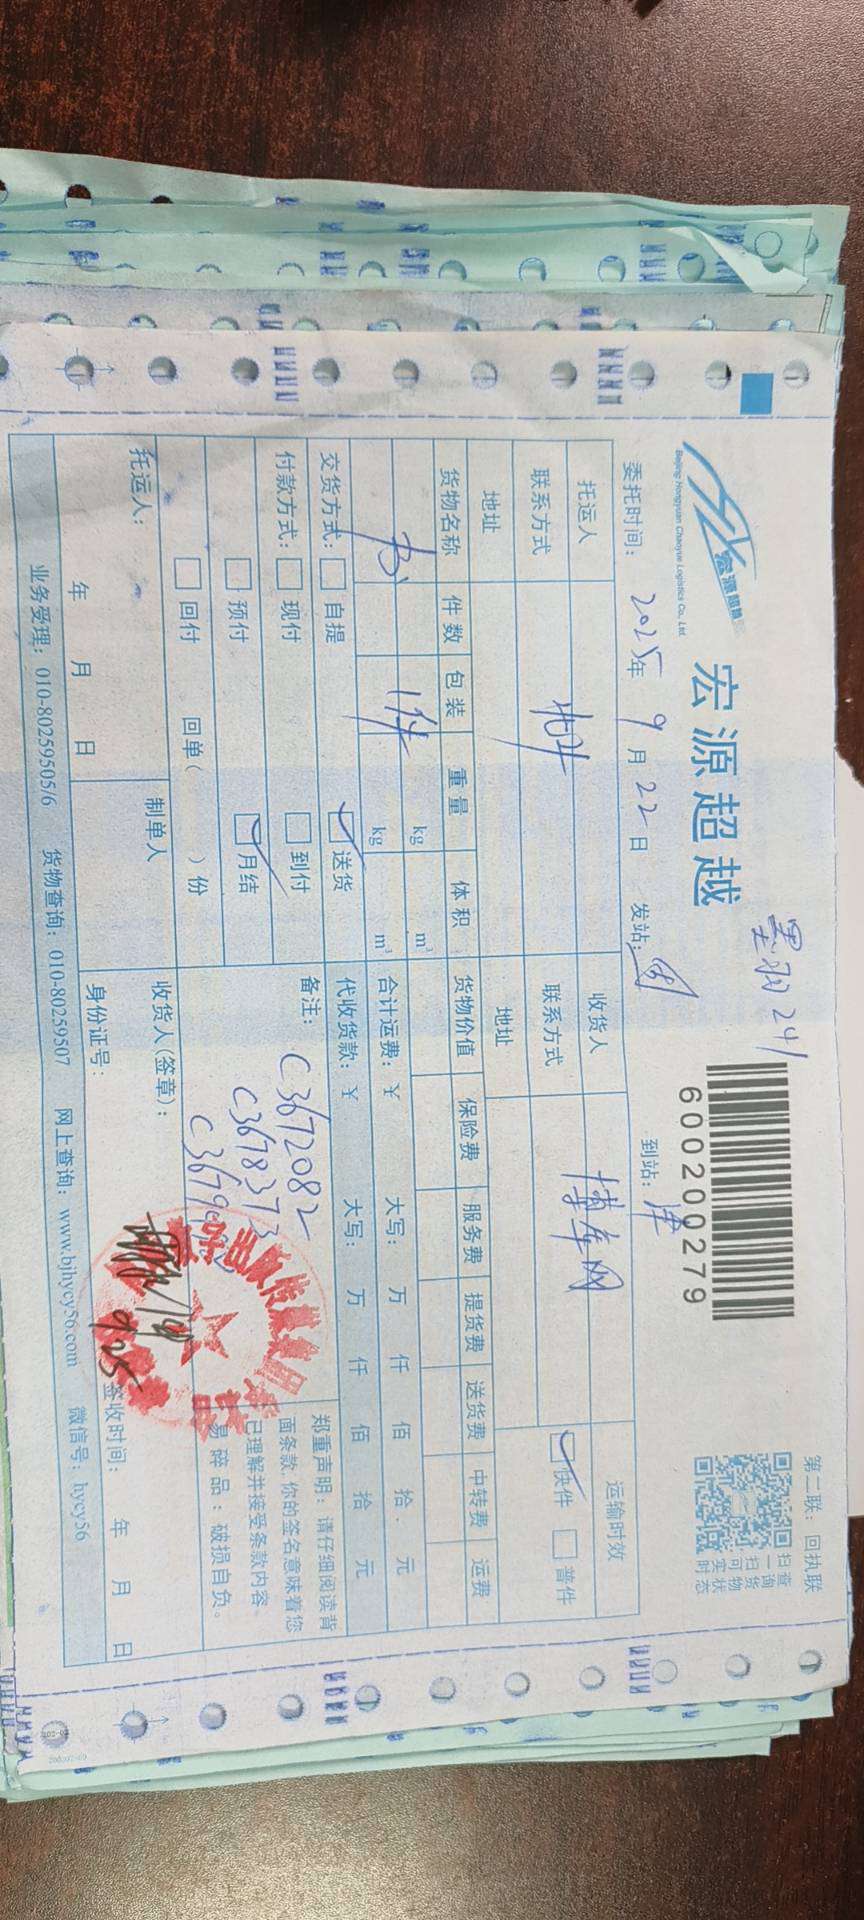 宏源超越
Beijing Hongyuan Chaoyue Logistics Co., Ltd
宏源超越
600200279
第二联：回执联
扫一扫可实时
查询货物状态
委托时间： 2025年 9月22日 发站： 到站：津
托运人 收货人 博库网 运输时效
联系方式 联系方式 快件 普件
地址 地址
货物名称 件数 包装 重量 体积 货物价值 保险费 服务费 提货费 送货费 中转费 运费
书 1件 kg m³
kg m³
合计运费：¥ 大写： 万 仟 佰 拾 元
交货方式： 自提 送货
代收货款：¥ 大写： 万 仟 佰 拾 元
付款方式： 现付 到付
预付 月结
回付 回单（ ）份
备注： C3672082
C3678373
郑重声明：请仔细阅读背
面条款，你的签名意味着您
已理解并接受条款内容。
易碎品：破损自负。
托运人： 制单人 收货人(签章)：
9.25
年 月 日 身份证号： 签收时间： 年 月 日
业务受理：010-80259505/6 货物查询：010-80259507 网上查询：www.bjhycy56.com 微信号：hycy56